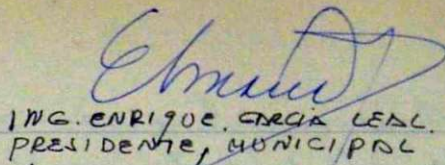 ING. ENRIQUE. GARCIA LEAL.
PRESIDENTE, MUNICIPAL